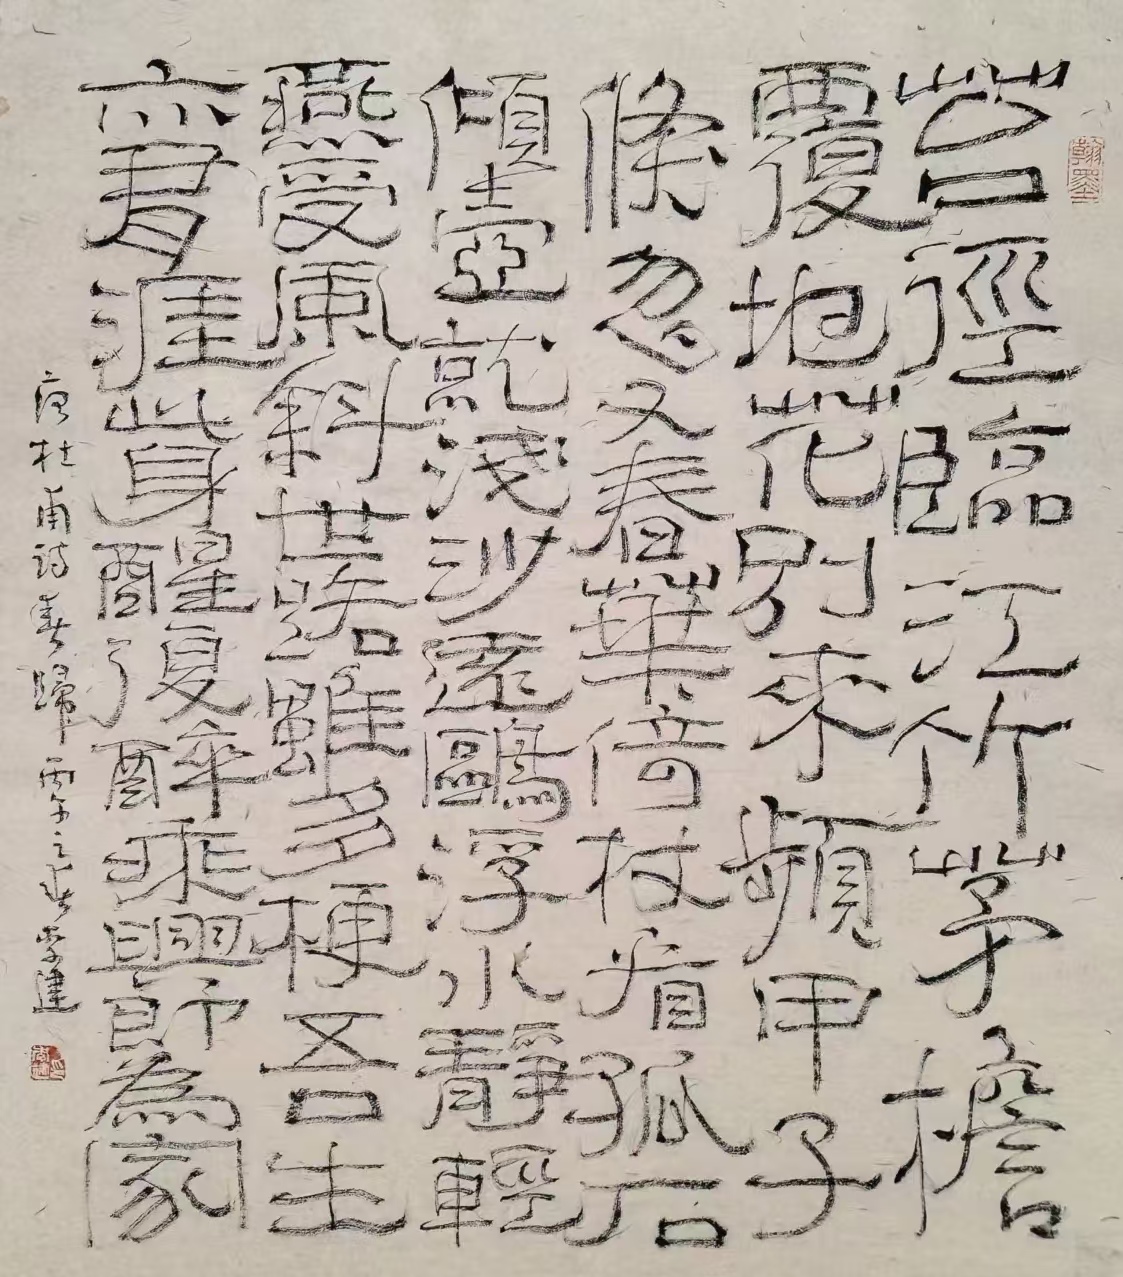 翰墨
苔徑臨江竹茅檐
覆地花別來頻甲子
倏忽又春華倚杖看孤石
傾壺就淺沙遠鷗浮水靜輕
燕受風斜世路雖多梗吾生
亦有涯此身醒復醉乘興即為家
唐杜甫詩春歸丙午之春建